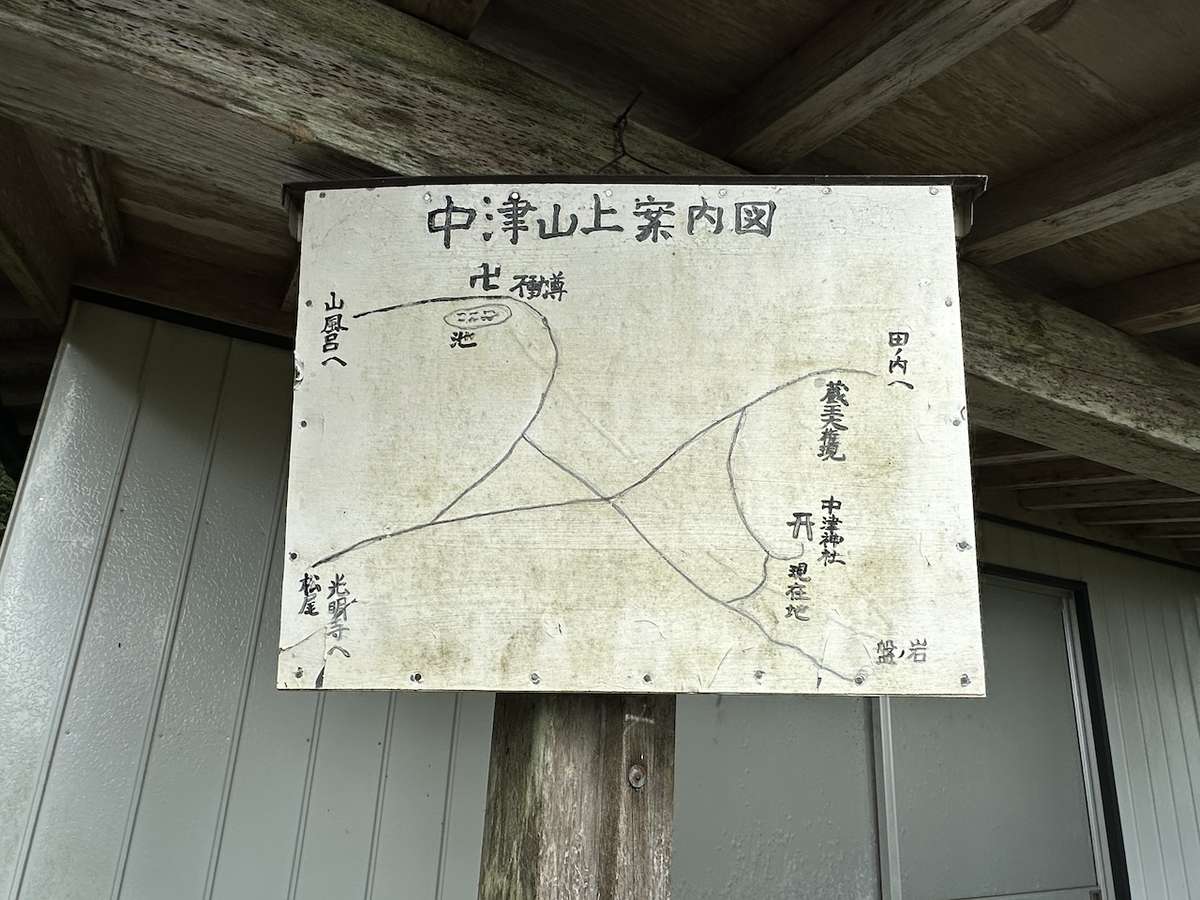 中津山上案内図
卍 不動尊
池
山風呂へ
田ノ内へ
蔵王大権現
中津神社
現在地
松尾
光明寺へ
盤ノ岩